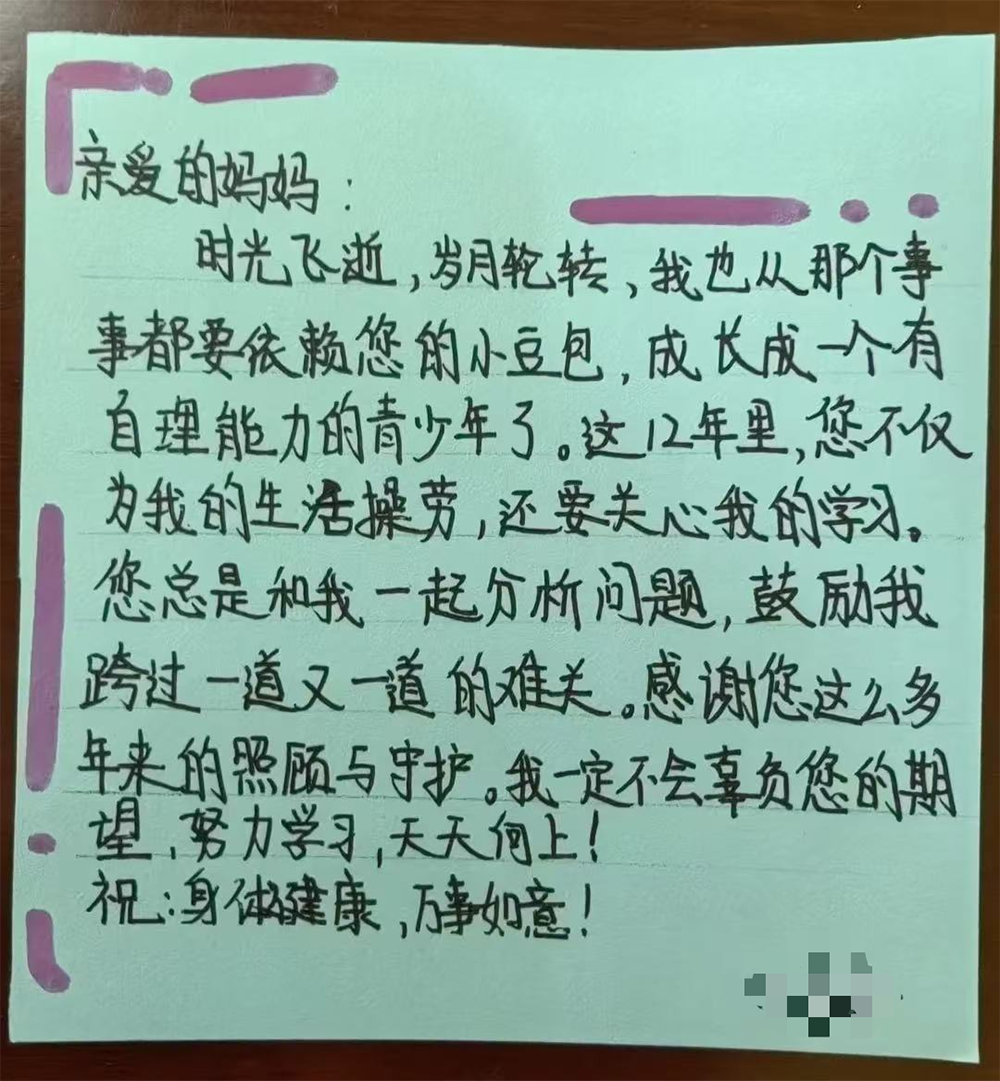 亲爱的妈妈：
时光飞逝，岁月轮转，我也从那个事
事都要依赖您的小豆包，成长成一个有
自理能力的青少年了。这12年里，您不仅
为我的生活操劳，还要关心我的学习。
您总是和我一起分析问题，鼓励我
跨过一道又一道的难关。感谢您这么多
年来的照顾与守护。我一定不会辜负您的期
望，努力学习，天天向上！
祝：身体健康，万事如意！